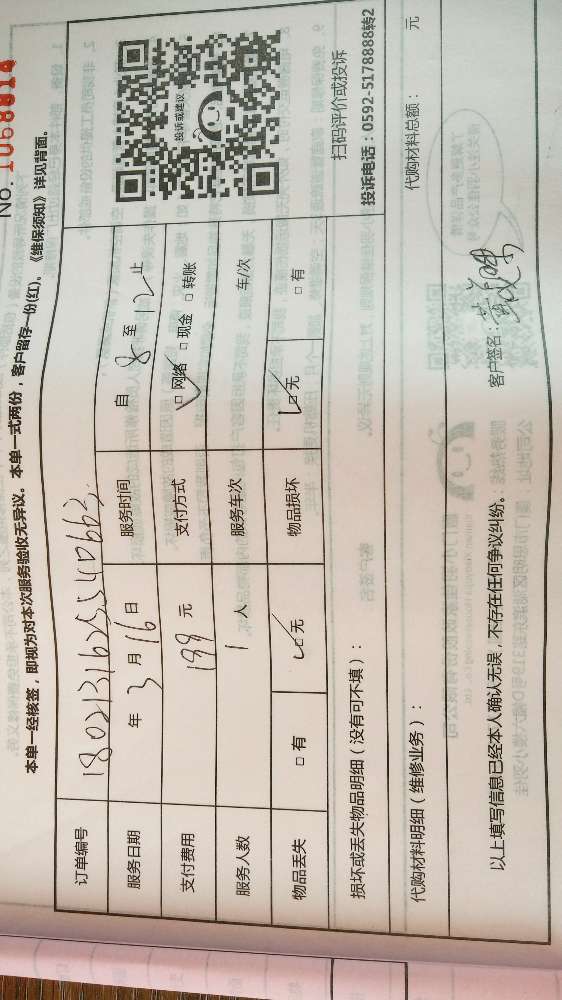 No. 1068814
本单一经核签，即视为对本次服务验收无异议。本单一式两份，客户留存一份(红)。《维保须知》详见背面。
订单编号
服务日期 年 3 月 16 日 服务时间 自 8 至 12 止
支付费用 198 元 支付方式 □网络 □现金 □转账
服务人数 1 人 服务车次 车/次
物品丢失 □有 □无 物品损坏 □无 □有
投诉或建议
扫码评价或投诉
投诉电话：0592-5178888转2
损坏或丢失物品明细（没有可不填）：
代购材料明细（维修业务）： 代购材料总额： 元
以上填写信息已经本人确认无误，不存在任何争议纠纷。 客户签名：